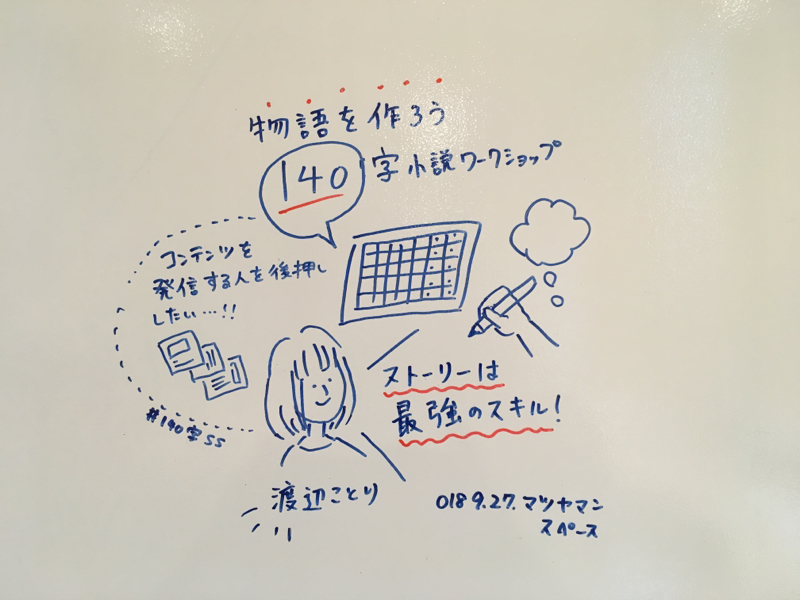 物語を作ろう
140字小説ワークショップ
コンテンツを
発信する人を後押し
したい…!!
#140字SS
ストーリーは
最強のスキル!
渡辺ことり
018 9.27. マツヤマン
スペース